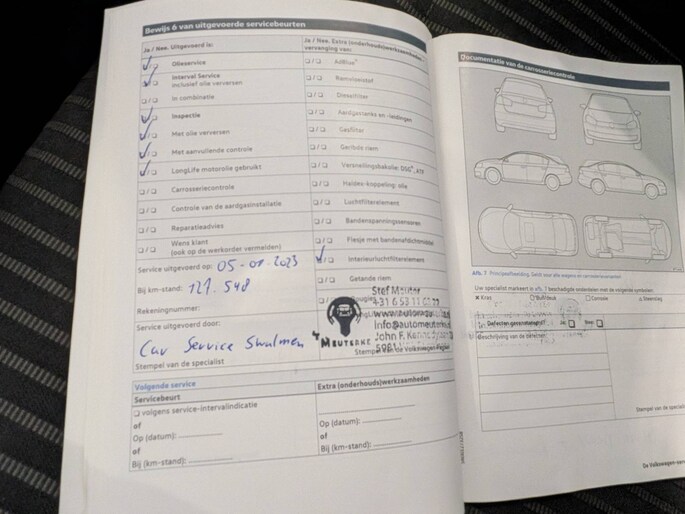 Bewijs 6 van uitgevoerde servicebeurten
Ja / Nee. Uitgevoerd is:
Olieservice
Interval Service
inclusief olie verversen
In combinatie
Inspectie
Met olie verversen
Met aanvullende controle
LongLife motorolie gebruikt
Carrosseriecontrole
Controle van de aardgasinstallatie
Reparatieadvies
Wens klant
(ook op de werkorder vermelden)
Service uitgevoerd op: 05-01-2023
Bij km-stand: 121.548
Rekeningnummer:
Service uitgevoerd door:
Car Service Swalmen
Stempel van de specialist
Ja / Nee. Extra (onderhouds)werkzaamheden/
vervanging van:
AdBlue®
Remvloeistof
Dieselfilter
Aardgastanks en -leidingen
Gasfilter
Geribde riem
Versnellingsbakolie: DSG®, ATF
Haldex-koppeling: olie
Luchtfilterelement
Bandenspanningssensoren
Flesje met bandenafdichtmiddel
Interieurluchtfilterelement
Getande riem
Stef
+31 6 53 11
www.
info@automeuter
John F. Ken
MEUTERKE
Stempel van de Volkswagen
Volgende service
Servicebeurt
volgens service-intervalindicatie
of
Op (datum):
of
Bij (km-stand):
Extra (onderhouds)werkzaamheden
Op (datum):
of
Bij (km-stand):
Documentatie van de carrosseriecontrole
Afb. 7 Principeafbeelding. Geldt voor alle wagens en carrosserievarianten
Uw specialist markeert in afb. 7 beschadigde onderdelen met de volgende symbolen:
X Kras
O Buil/deuk
□ Corrosie
△ Steenslag
Defecten geconstateerd?
Ja:
Nee:
Beschrijving van de defecten:
Stempel van de special
De Volkswagen-serv